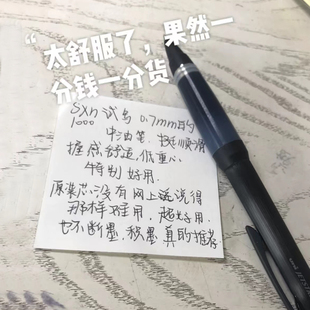 “太舒服了，果然一
分钱一分货
SXn 试写 0.7mm的
1000
中油笔. 挺顺滑
握感舒适,低重心.
特别好用.
原装芯没有网上说得
那样难用,超好用.
也不断墨,积墨真的推荐